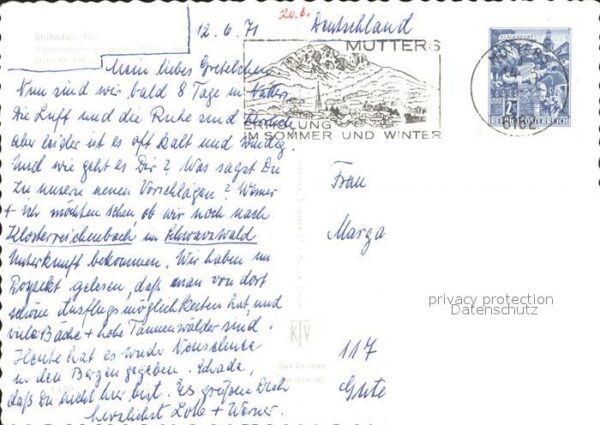 12.6.71
20.6.
Deutschland
Stubaital - Tirol
Mein liebes Gretelchen
Nun sind wir bald 8 Tage in Natters
Die Luft und die Ruhe sind herrlich
aber leider ist es oft kalt und windig
Und wie geht es Dir? Was sagst Du
zu unseren neuen Vorschlägen? Werner
+ ich möchten sehen ob wir noch nach
Klosterreichenbach im Schwarzwald
Unterkunft bekommen. Wir haben im
Prospekt gelesen, daß man von dort
schöne Ausflugsmöglichkeiten hat, und
viele Bäche + hohe Tannenwälder sind.
Heute hat es wieder Neuschnee
in den Bergen gegeben. Schade,
daß Du nicht hier bist. Es grüßen Dich
herzlichst Lotte + Werner.
MUTTERS
ERHOLUNG
IM SOMMER UND WINTER
MUTTERS
6162
2S
REPUBLIK ÖSTERREICH
Frau
Marga
privacy protection
Datenschutz
KTV
117
Gute